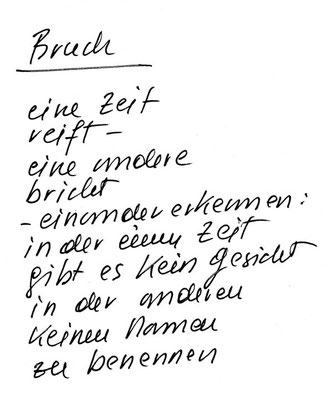 Bruch
eine Zeit
reift –
eine andere
bricht
– einander erkennen:
in der einen Zeit
gibt es kein Gesicht
in der anderen
keinen Namen
zu benennen